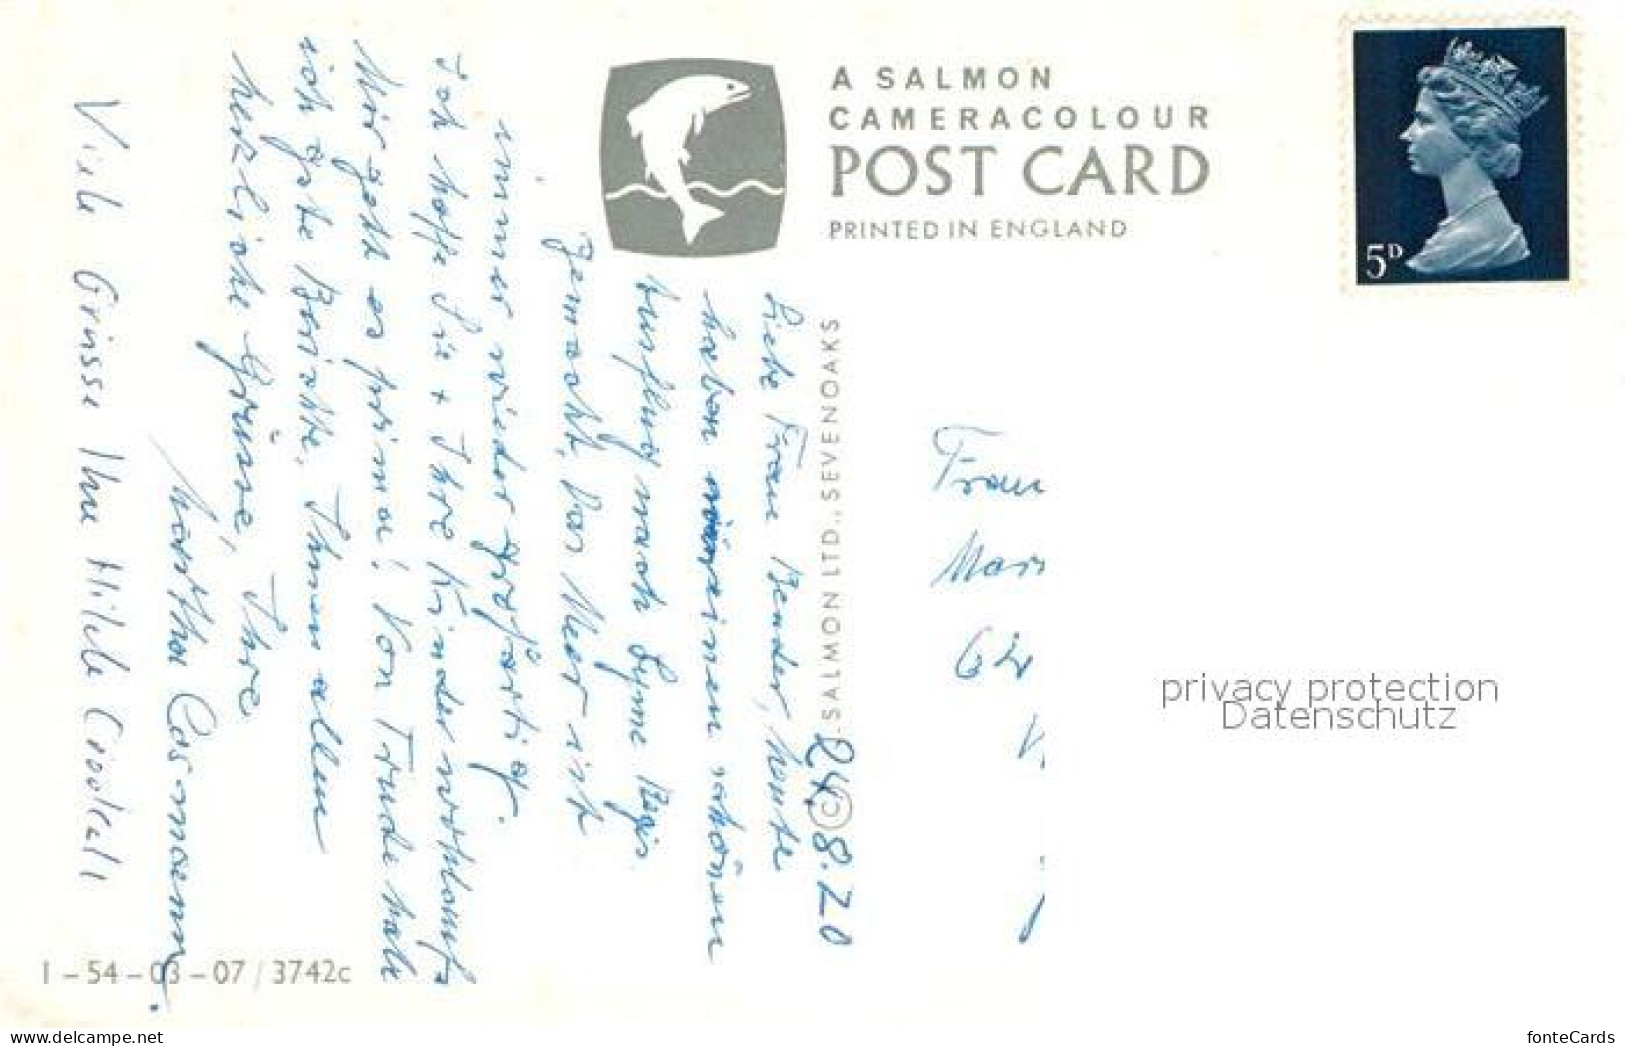 A SALMON
CAMERACOLOUR
POST CARD
PRINTED IN ENGLAND
5D
24.8.70
Liebe Frau Bender, heute
haben wir einen schönen
Ausflug nach Lyme Regis
gemacht, das Meer ist
immer wieder großartig.
Ich hoffe Sie + Ihre Kinder wohlauf,
Mir geht es prima! Von Trude hab
ich gute Berichte, Ihnen allen
herzliche Grüsse, Ihre
Martha
Viele Grüsse Ihre Hilde
© J. SALMON LTD., SEVENOAKS
Frau
Mar
62
privacy protection
Datenschutz
1 – 54 – 03 – 07 / 3742c
www.delcampe.net
fonteCards